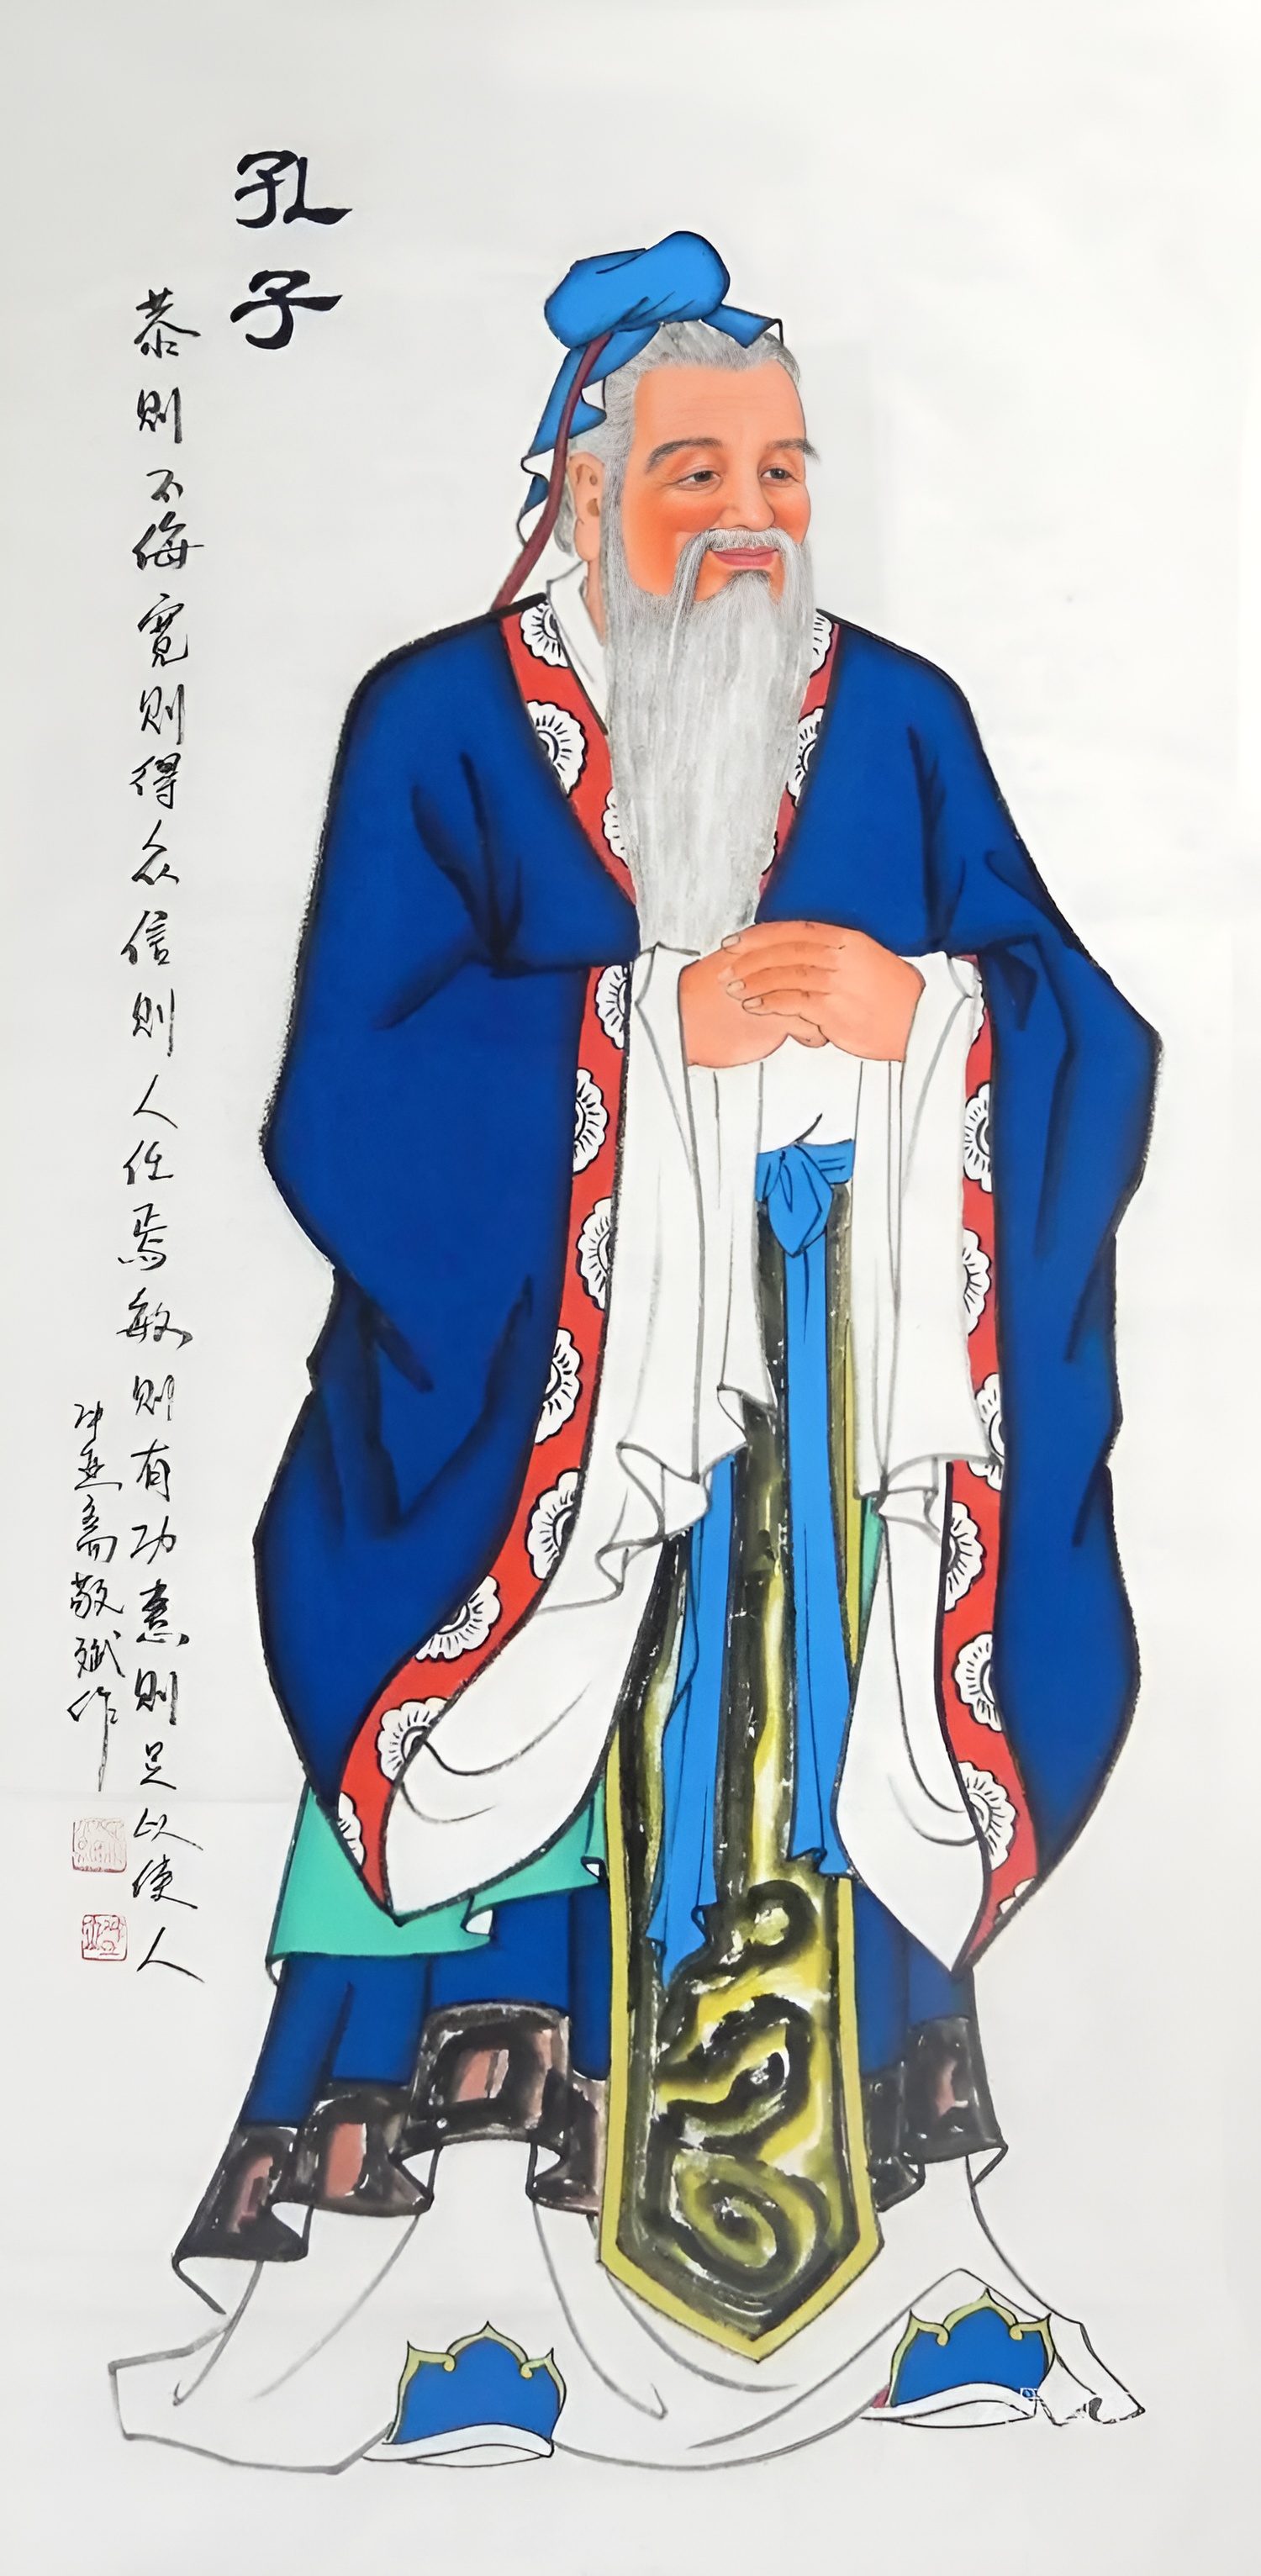 孔子
恭则不侮宽则得众信则人任焉敏则有功惠则足以使人
斋敬斌作